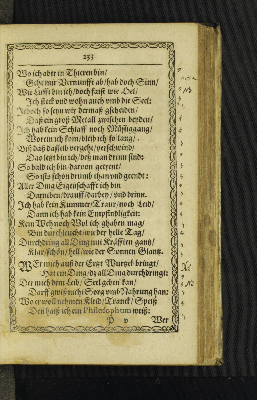 233
Wo ich aber in Thieren bin/
Geht mir Vernunfft ab/ hab doch Sinn/
Wie Lufft bin ich/ doch faist wie Oel/
Ich steck vnd wohn auch vmb die Seel:
Jedoch so seyn wir dermaß gscheiden/
Daß ein groß Metall zwischen beyden/
Ich hab kein Schlaff noch Müssiggang/
Worein ich kom/ bleib ich so lang/
Biß daß dasselb vergeht/ verschwind/
Das letzt bin ich/ deß man drinn find:
So bald ich bin darvon getrent/
So ists schon drumb than vnd gerendt:
Aller Ding Eigenschafft ich bin
Darneben/ drauff/ darbey/ vnd drinn.
Ich hab kein Kummer/ Traur/ noch Leid/
Dann ich hab kein Empfindligkeit:
Kein Weh noch Wol ich ghaben mag/
Bin durchleucht wie der helle Tag/
Durchdring all Ding mit Kräfften gantz/
Klar/ schön/ hell/ wie der Sonnen Glantz.
WEr mich auß der Ertzt Wurtzel bringt/
Hat ein Ding/ dz all Ding durchdringt:
Der mich dem Leib/ Seel geben kan/
Darff gwiß nicht Sorg vmb Nahrung han:
Wo er woll nehmen Kleid/ Tranck/ Speiß
Den haiß ich ein Philosophum weiß:
P v Wer